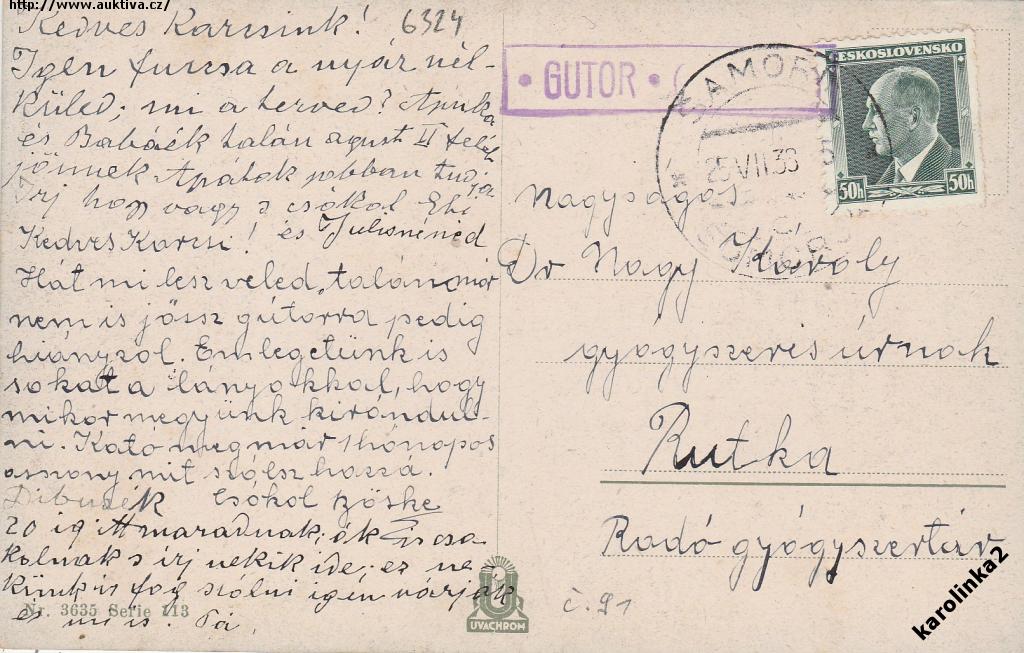 http://www.auktiva.cz/
Kedves Karcsink! 6324
Igen furcsa a nyár nél-
küled; mi a terved? Apuka
és Babáék talán agust II felé
jönnek Apátok jobban tudja
írj hogy vagy s csókol
és Julisnéned
Kedves Karcsi!
Hát mi lesz veled, talán már
nem is jössz gútorra pedig
hiányzol. Emlegetünk is
sokat a lányokkal, hogy
mikor megyünk kirándul-
ni. Kato meg már 1 hónapos
asszony mit szólsz hozzá.
Csókol Böske
20 ig itt maradnak; ők is csó
kolnak s írj nekik ide; ez ne
künk is fog szólni igen várják
és mi is. Pá.
Nr. 3635 Serie 113
UVACHROM
č. 91
• GUTOR •
ŠAMORÍN
25.VII.38
ČESKOSLOVENSKO
50h 50h
Nagyságos
Dr Nagy Károly
gyógyszerész úrnak
Rutka
Radó gyógyszertár
karolinka2